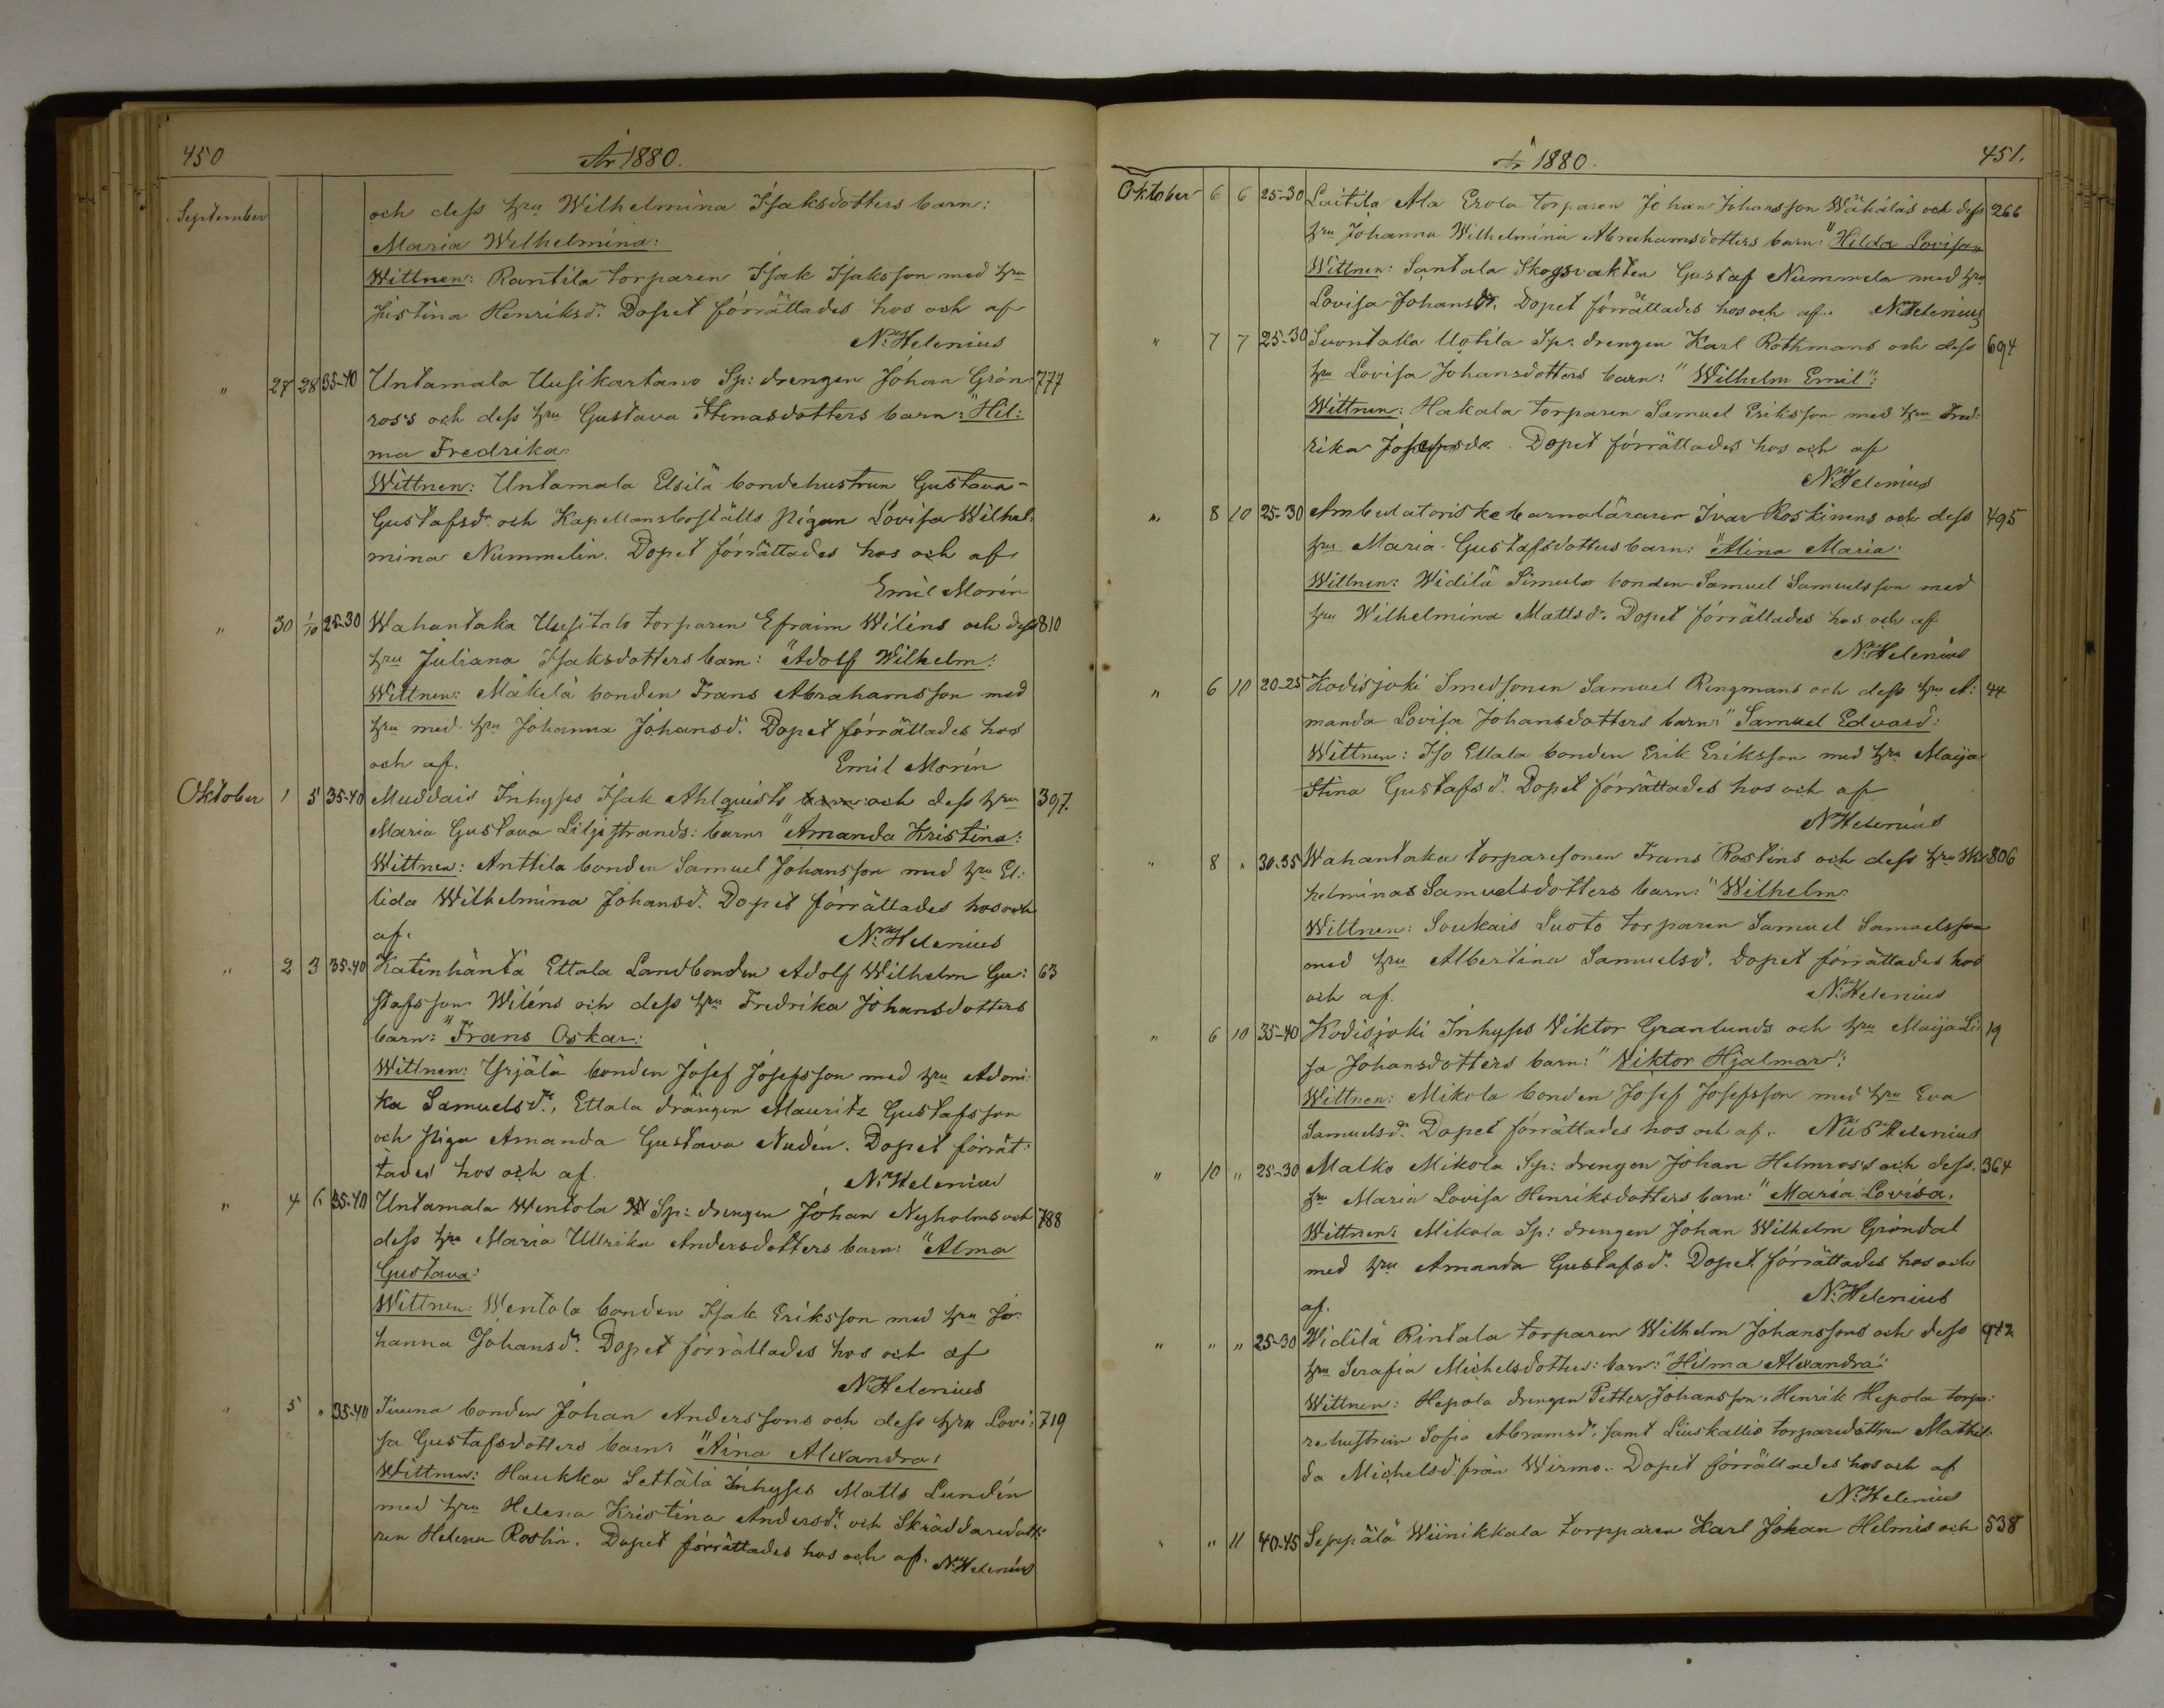 450
År 1880.
September
och dess hru Wilhelmina Isaksdotters barn:
Maria Wilhelmina:
Wittnen: Rantila torparen Isak Isaksson med hru
Justina Henriksdr. Dopet förrättades hos och af
N. Helenius
" 27 28 35-40 Untamala Uusikartano Sp: drengen Johan Grön- 777
ros's och dess hru Gustava Stinasdotters barn: "Hil:
ma Fredrika.
Wittnen: Untamala Elsilä bondehustrun Gustava
Gustafsdr och Kapellansboställs Pigan Lovisa Wilhel:
mina Nummelin. Dopet förrättades hos och af
Emil Morén
" 30 1/10 25-30 Wahantaka Uusitalo torparen Efraim Wiléns och dess 810
hru Juliana Isaksdotters barn: "Adolf Wilhelm:
Wittnen: Mäkelä bonden Frans Abrahamsson med
hru med hru Johanna Johansdr. Dopet förrättades hos
och af. Emil Morén
Oktober 1 5 35-40 Muddais Inhyses Isak Ahlquists barn och dess hru 397.
Maria Gustava Liljestrands: barn "Amanda Kristina:
Wittnen: Anttila bonden Samuel Johansson med hru El:
lida Wilhelmina Johansdr. Dopet förrättades hos och
af. N. Helenius
" 2 3 35-40 Katinhäntä Ettala Landbonden Adolf Wilhelm Gu: 63
stafsson Wiléns och dess hru Fredrika Johansdotters
barn: "Frans Oskar:
Wittnen: Yrjälä bonden Josef Josefsson med hru Adoni
ka Samuelsdr., Ettala drängen Maurits Gustafsson
och Piga Amanda Gustava Nudén. Dopet förrät:
tades hos och af. N. Helenius
" 4 6 35-40 Untamala Wentola Sp: drengen Johan Nyholms och 788
dess hru Maria Ullrika Andersdotters barn: "Alma
Gustava:
Wittnen: Wentola bonden Isak Eriksson med hru Jo
hanna Johansdr. Dopet förrättades hos och af
N. Helenius
" 5 " 35-40 Juuna bonden Johan Anderssons och dess hru Lovi: 719
sa Gustafsdotters barn: "Aina Alexandra:
Wittnen: Haukka Settälä Inhyses Matts Lundén
med hru Helena Kristina Andersdr. och Skräddaredott:
ren Helena Roslin. Dopet förrättades hos och af. N. Helenius
År 1880.
451.
Oktober 6 6 25-30 Laitila Ala Erola torparen Johan Johansson Wähäläs och dess 266
hru Johanna Wilhelmina Abrahamsdotters barn: "Hilda Lovisa:
Wittnen: Santala Skogsvakten Gustaf Nummela med hru
Lovisa Johansdr. Dopet förrättades hos och af. N. Helenius
" 7 7 25-30 Suontaka Uotila Sp: drengen Karl Rothmans och dess 694
hru Lovisa Johansdotters barn: "Wilhelm Emil":
Wittnen: Hakala torparen Samuel Eriksson med hru Fred:
rika Josefsdr. Dopet förrättades hos och af
N. Helenius
" 8 10 25-30 Ambulatoriske barnaläraren Ivar Koskinens och dess 495
hru Maria Gustafsdotters barn: "Alina Maria:
Wittnen: Widilä Simula bonden Samuel Samuelsson med
hru Wilhelmina Mattsdr. Dopet förrättades hos och af
N. Helenius
" 6 10 20-25 Kodisjoki Smedsonen Samuel Ringmans och dess hru A: 44
manda Lovisa Johansdotters barn: "Samuel Edvard:
Wittnen: Iso Ettala bonden Erik Eriksson med hru Maija
Stina Gustafsdr. Dopet förrättades hos och af
N. Helenius
" 8 " 30-35 Wahantaka torparesonen Frans Rostins och dess hru Wil 806
helminas Samuelsdotters barn: "Wilhelm:
Wittnen: Soukais Luoto torparen Samuel Samuelsson
med hru Albertina Samuelsdr. Dopet förrättades hos
och af. N. Helenius
" 6 10 35-40 Kodisjoki Inhyses Viktor Granlunds och hru Maija Li 19
sa Johansdotters barn: "Viktor Hjalmar":
Wittnen: Mikola bonden Josef Josefsson med hru Eva
Samuelsdr. Dopet förrättades hos och af. Niis Helenius
" 10 " 25-30 Malko Mikola Sp: drengen Johan Helmross och dess 364
hru Maria Lovisa Henriksdotters barn: "Maria Lovisa.
Wittnen: Mikola Sp: drengen Johan Wilhelm Gröndal
med hru Amanda Gustafsdr. Dopet förrättades hos och
af. N. Helenius
" " " 25-30 Widilä Rintala torparen Wilhelm Johanssons och dess 942
hru Serafia Michelsdotters: barn: "Hilma Alexandra:
Wittnen: Hepola drengen Petter Johansson, Henrik Hepola torpa:
rehustrun Sofia Abramsdr. samt Liuskallio torparedottren Mathil:
da Michelsdr. från Wirmo. Dopet förrättades hos och af
N. Helenius
" " 11 40-45 Seppälä Wiinikkala torpparen Karl Johan Helmis och 538